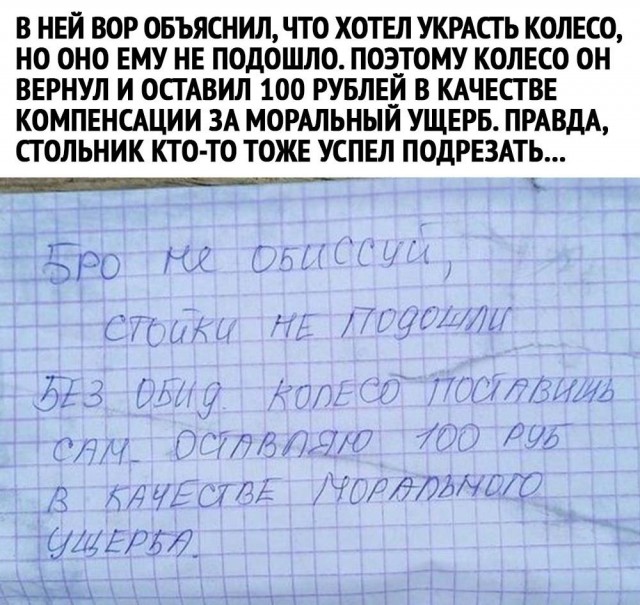 В НЕЙ ВОР ОБЪЯСНИЛ, ЧТО ХОТЕЛ УКРАСТЬ КОЛЕСО,
НО ОНО ЕМУ НЕ ПОДОШЛО. ПОЭТОМУ КОЛЕСО ОН
ВЕРНУЛ И ОСТАВИЛ 100 РУБЛЕЙ В КАЧЕСТВЕ
КОМПЕНСАЦИИ ЗА МОРАЛЬНЫЙ УЩЕРБ. ПРАВДА,
СТОЛЬНИК КТО-ТО ТОЖЕ УСПЕЛ ПОДРЕЗАТЬ...
БРО НЕ ОБИССУЙ,
СТОЙКИ НЕ ПОДОШЛИ
БЕЗ ОБИД. КОЛЕСО ПОСТАВИШЬ
САМ. ОСТАВЛЯЮ 100 РУБ
В КАЧЕСТВЕ МОРАЛЬНОГО
УЩЕРБА.